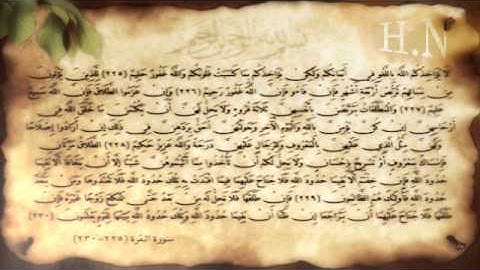 بسم الله الرحمن الرحيم
H.N
لا يؤاخذكم الله باللغو في أيمانكم ولكن يؤاخذكم بما كسبت قلوبكم والله غفور حليم (٢٢٥) للذين يؤلون
من نسائهم تربص أربعة أشهر فإن فاءوا فإن الله غفور رحيم (٢٢٦) وإن عزموا الطلاق فإن الله سميع
عليم (٢٢٧) والمطلقات يتربصن بأنفسهن ثلاثة قروء ولا يحل لهن أن يكتمن ما خلق الله في
أرحامهن إن كن يؤمن بالله واليوم الآخر وبعولتهن أحق بردهن في ذلك إن أرادوا إصلاحا
ولهن مثل الذي عليهن بالمعروف وللرجال عليهن درجة والله عزيز حكيم (٢٢٨) الطلاق مرتان
فإمساك بمعروف أو تسريح بإحسان ولا يحل لكم أن تأخذوا مما آتيتموهن شيئا إلا أن يخافا ألا يقيما
حدود الله فإن خفتم ألا يقيما حدود الله فلا جناح عليهما فيما افتدت به تلك حدود الله فلا تعتدوها ومن يتعد
حدود الله فأولئك هم الظالمون (٢٢٩) فإن طلقها فلا تحل له من بعد حتى تنكح زوجا غيره فإن
طلقها فلا جناح عليهما أن يتراجعا إن ظنا أن يقيما حدود الله وتلك حدود الله يبينها لقوم يعلمون (٢٣٠)
سورة البقرة (٢٢٥-٢٣٠)